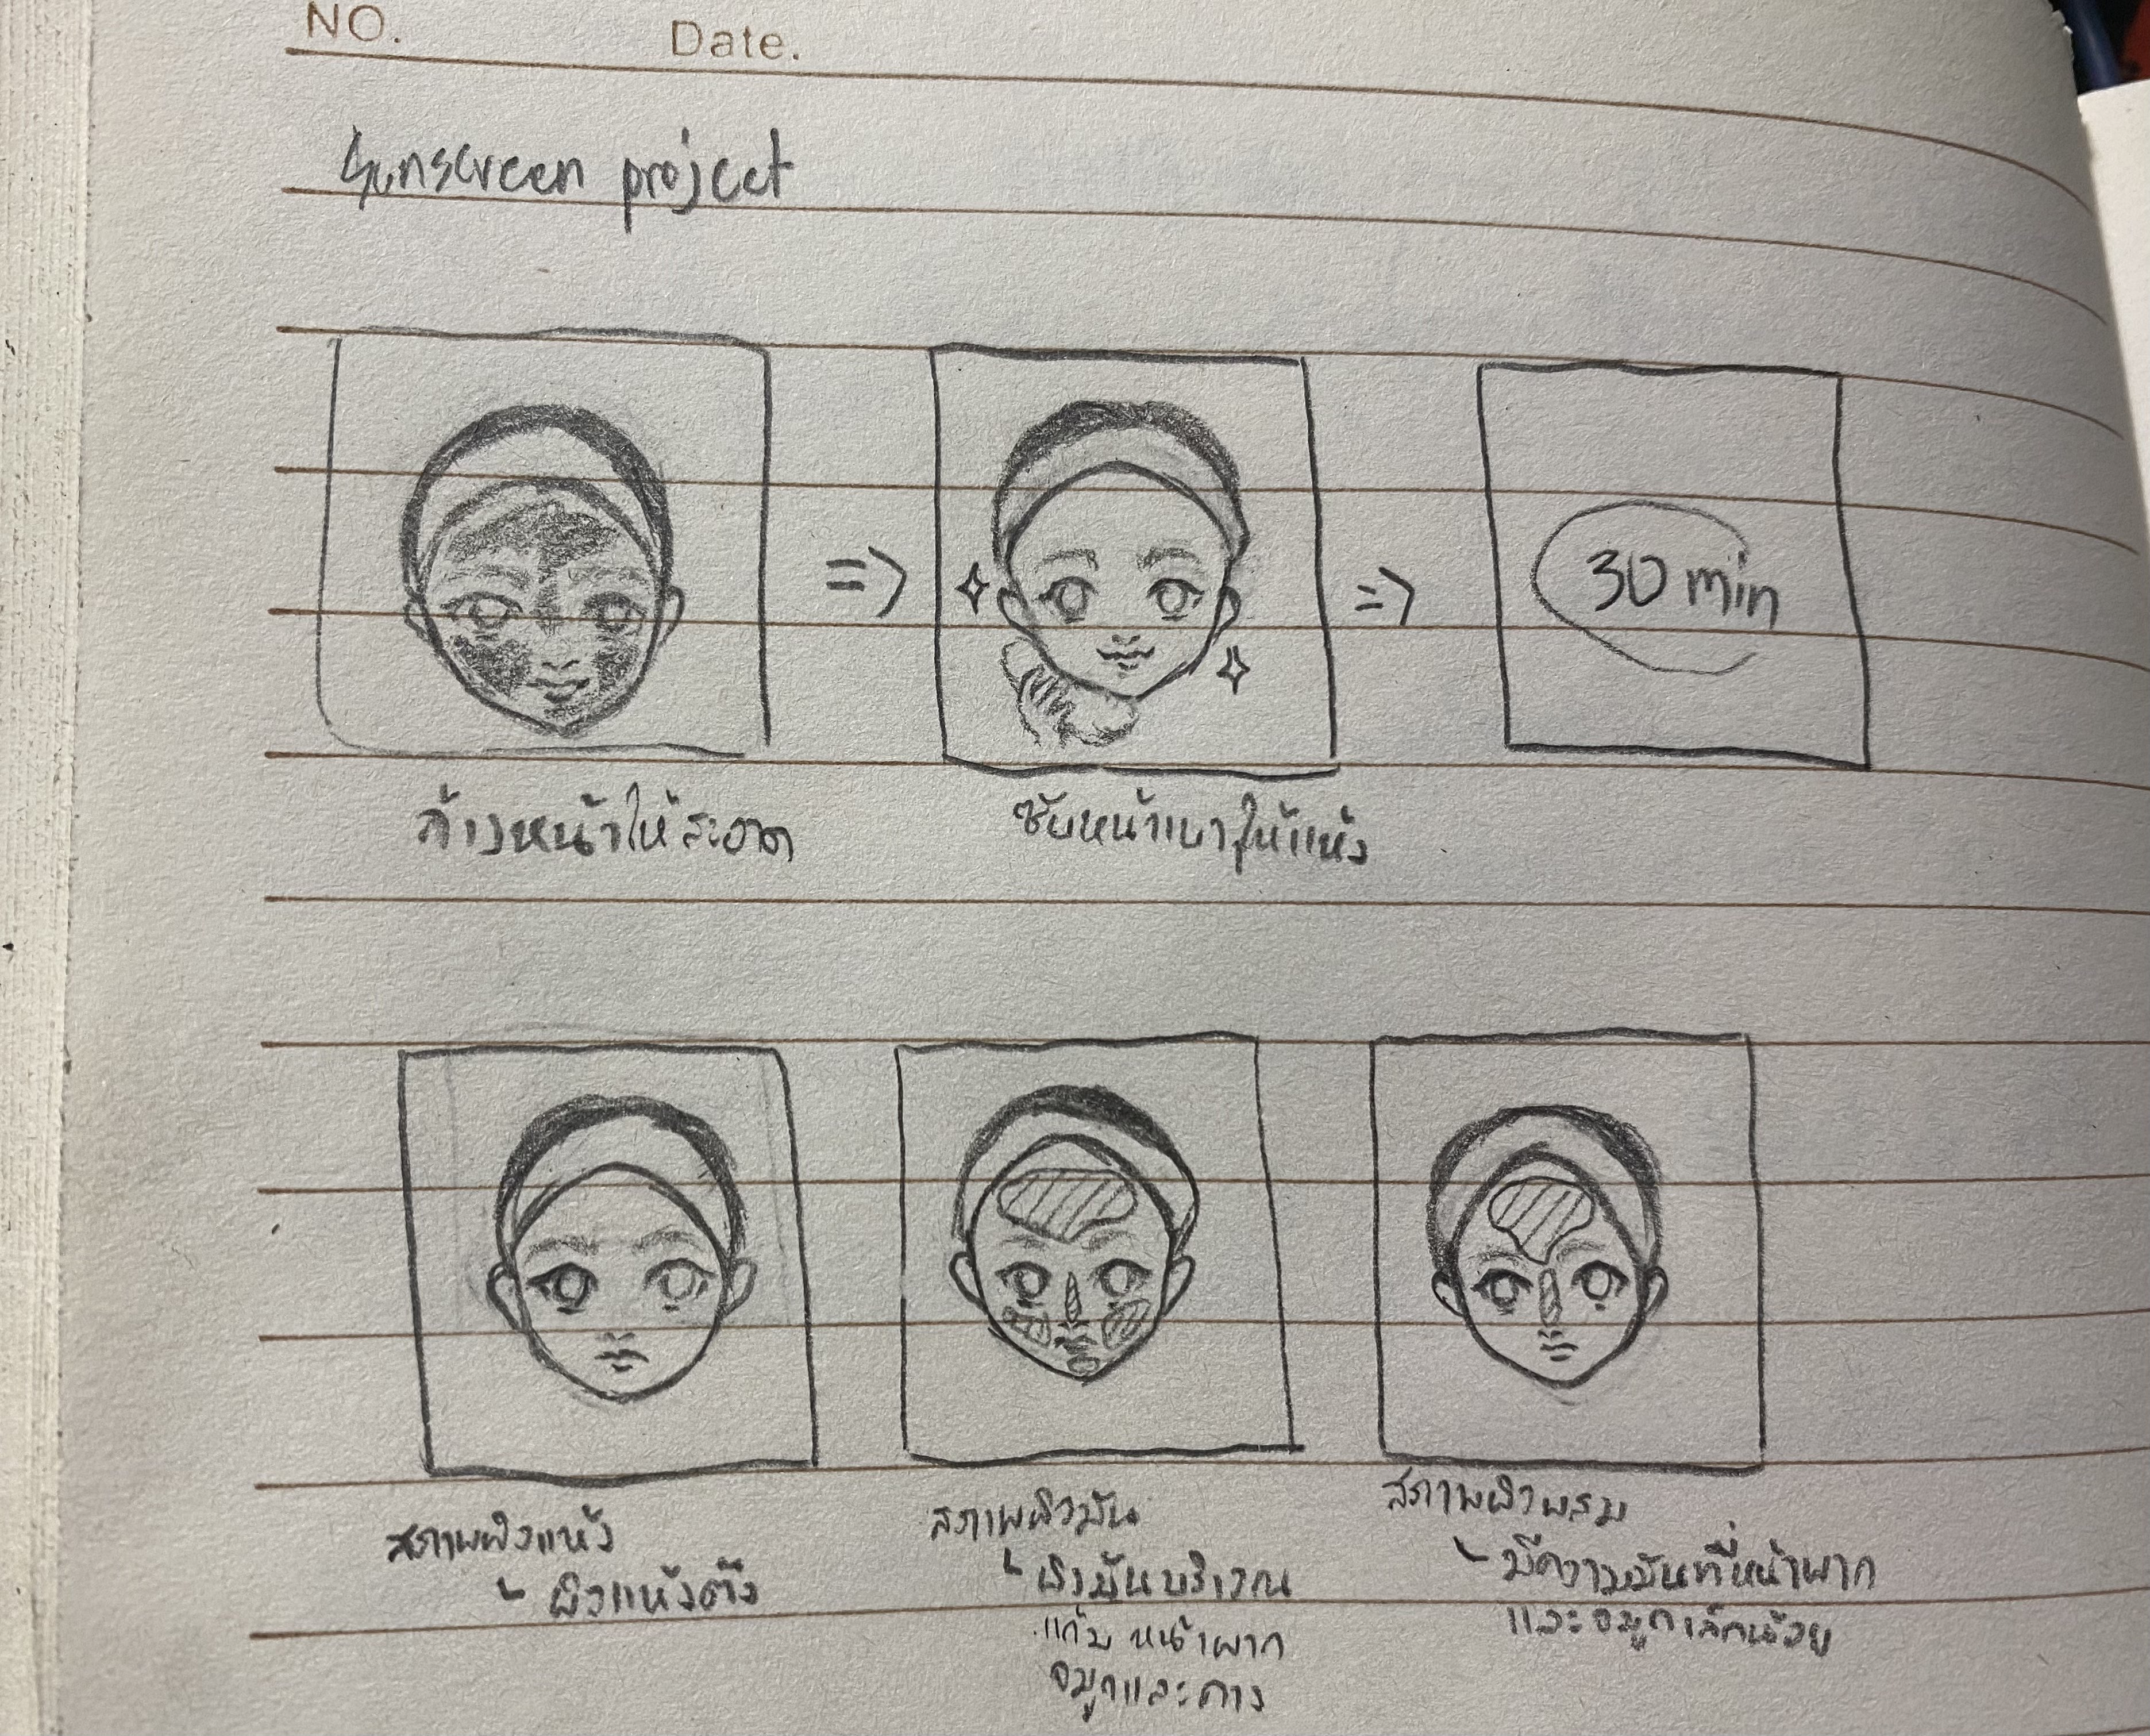 NO. Date.
Sunscreen project
=> =>
30 min
ล้างหน้าให้สะอาด
ซับหน้าเบาๆให้แห้ง
สภาพผิวแห้ง
ผิวแห้งตึง
สภาพผิวมัน
ผิวมันบริเวณ
แก้ม หน้าผาก
จมูกและคาง
สภาพผิวผสม
มีความมันที่หน้าผาก
และจมูกเล็กน้อย